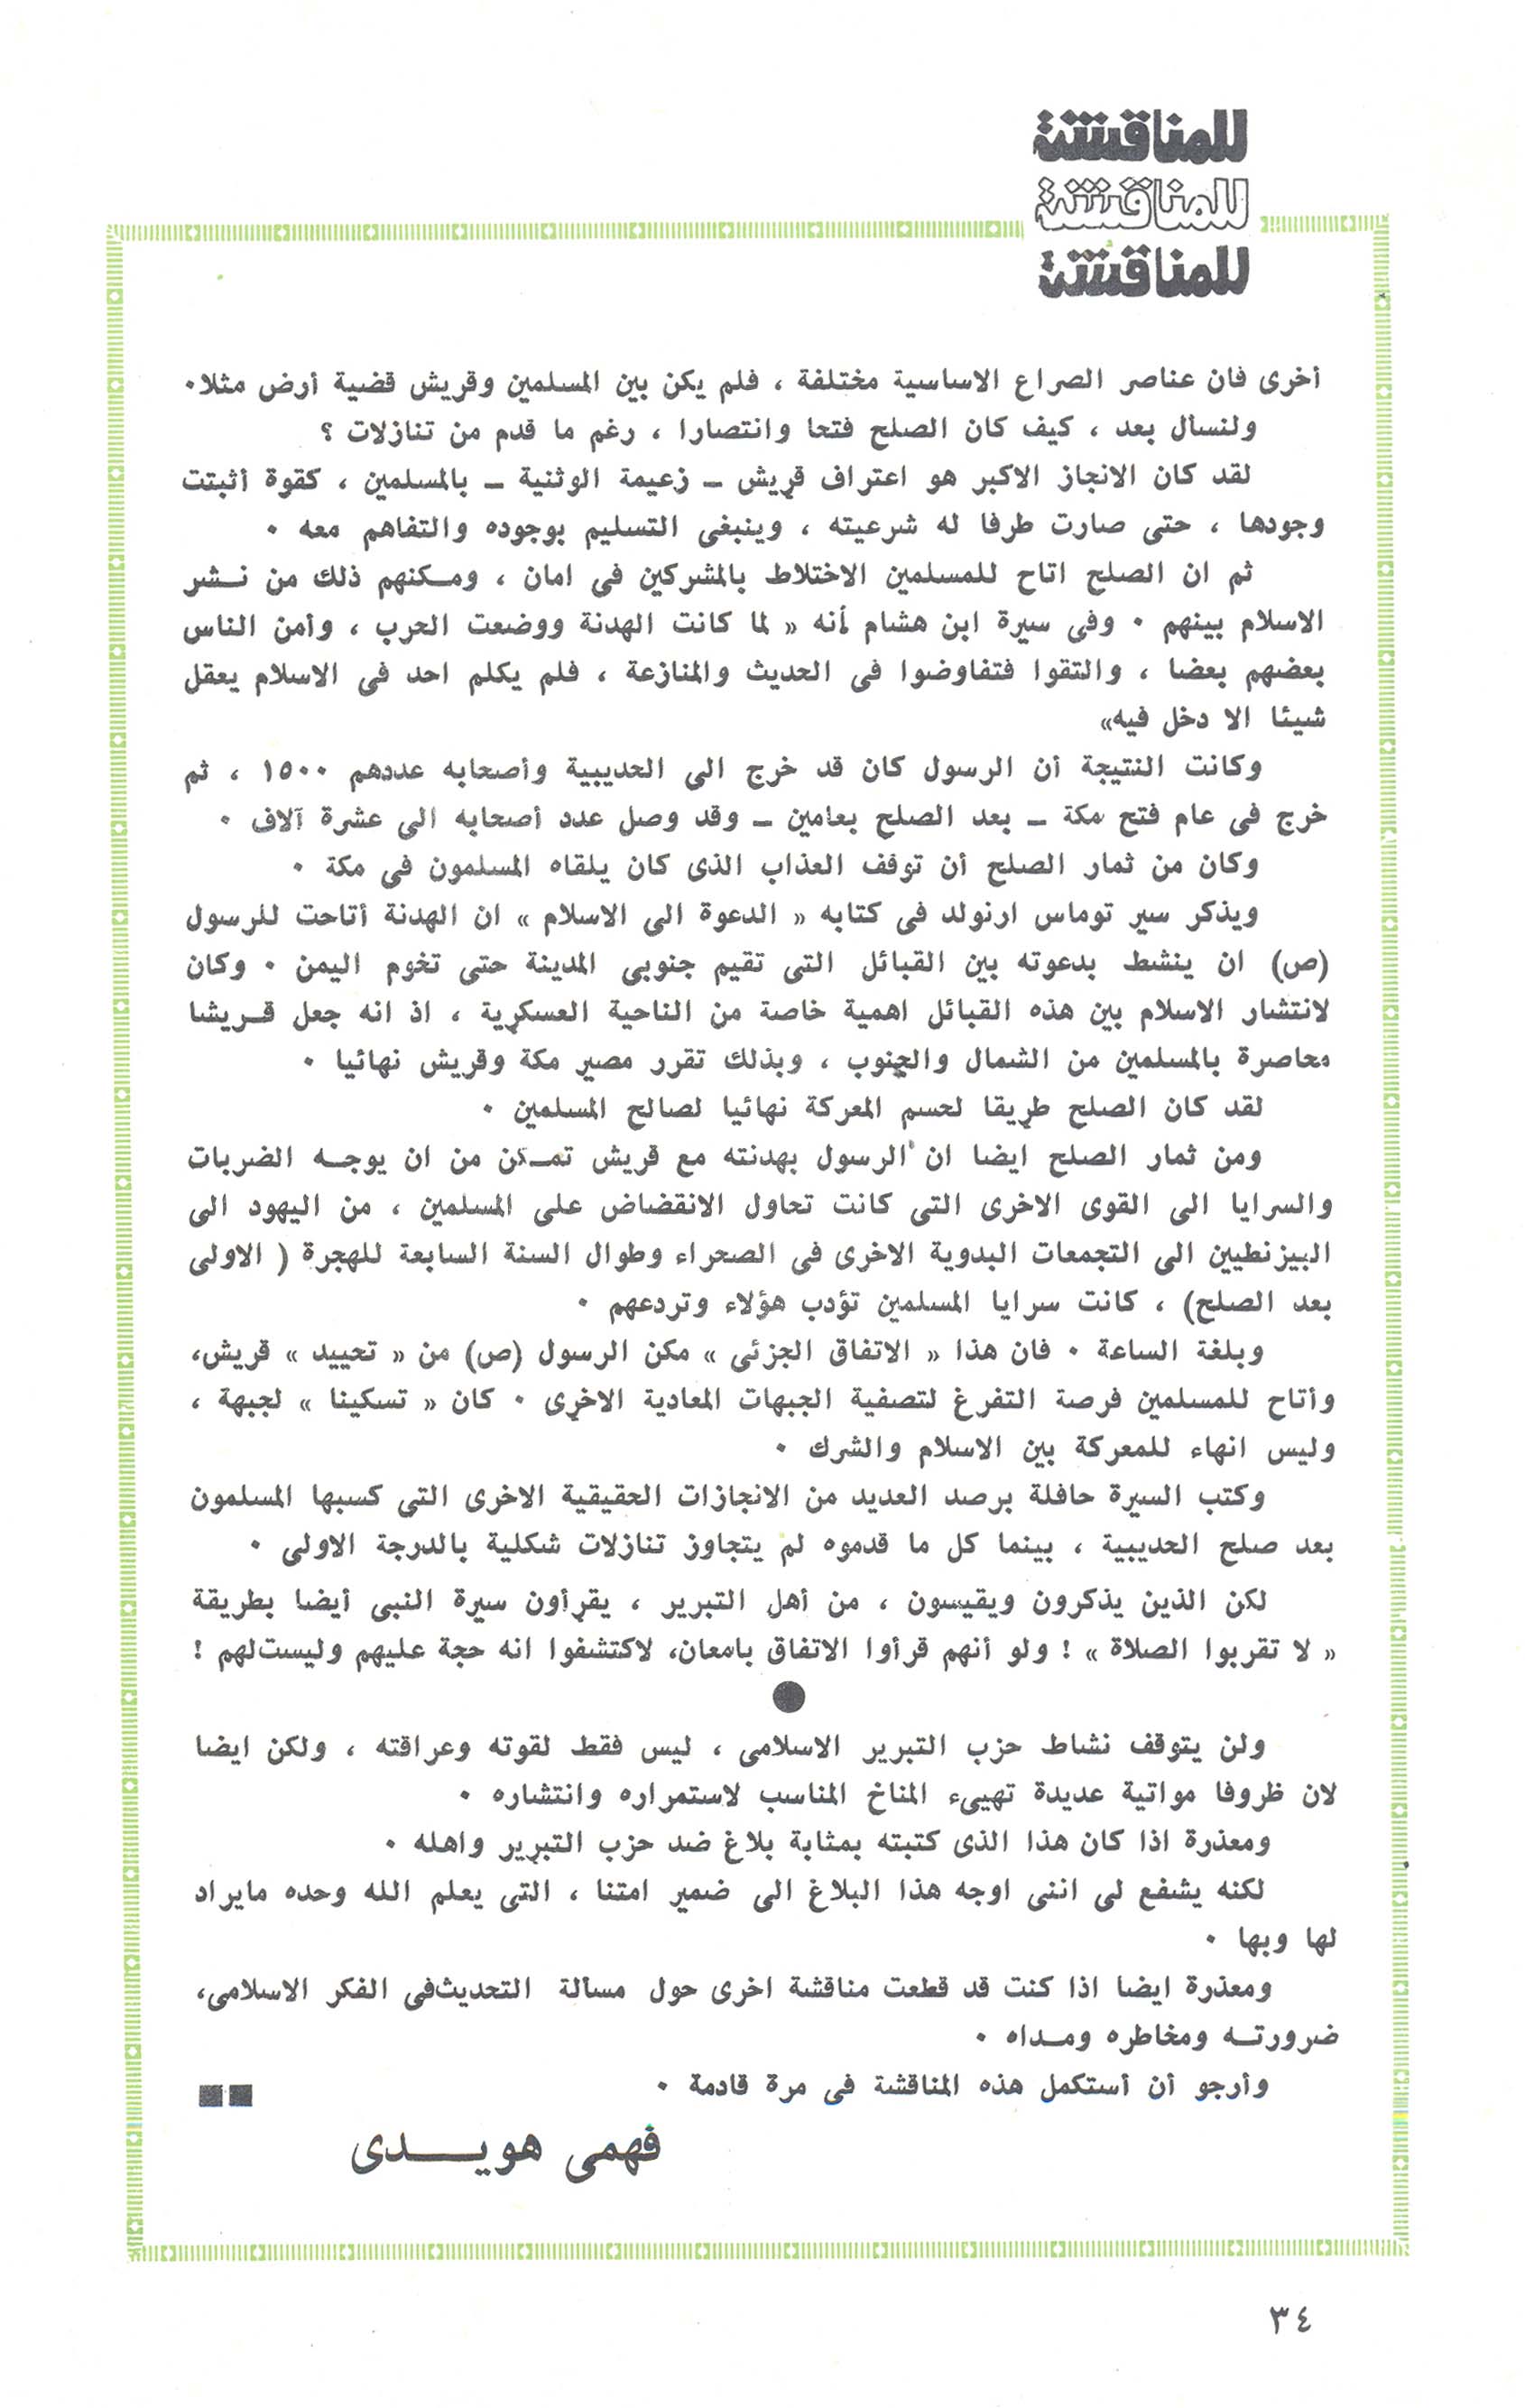 للمناقشة
للمناقشة
للمناقشة
أخرى فان عناصر الصراع الاساسية مختلفة ، فلم يكن بين المسلمين وقريش قضية أرض مثلا٠
ولنسأل بعد ، كيف كان الصلح فتحا وانتصارا ، رغم ما قدم من تنازلات ؟
لقد كان الانجاز الاكبر هو اعتراف قريش ــ زعيمة الوثنية ــ بالمسلمين ، كقوة أثبتت
وجودها ، حتى صارت طرفا له شرعيته ، وينبغى التسليم بوجوده والتفاهم معه ٠
ثم ان الصلح اتاح للمسلمين الاختلاط بالمشركين فى امان ، ومـكنهم ذلك من نـشر
الاسلام بينهم ٠ وفى سيرة ابن هشام أنه « لما كانت الهدنة ووضعت الحرب ، وأمن الناس
بعضهم بعضا ، والتقوا فتفاوضوا فى الحديث والمنازعة ، فلم يكلم احد فى الاسلام يعقل
شيئا الا دخل فيه»
وكانت النتيجة أن الرسول كان قد خرج الى الحديبية وأصحابه عددهم ١٥٠٠ ، ثم
خرج فى عام فتح مكة ــ بعد الصلح بعامين ــ وقد وصل عدد أصحابه الى عشرة آلاف ٠
وكان من ثمار الصلح أن توقف العذاب الذى كان يلقاه المسلمون فى مكة ٠
ويذكر سير توماس ارنولد فى كتابه « الدعوة الى الاسلام » ان الهدنة أتاحت للرسول
(ص) ان ينشط بدعوته بين القبائل التى تقيم جنوبى المدينة حتى تخوم اليمن ٠ وكان
لانتشار الاسلام بين هذه القبائل اهمية خاصة من الناحية العسكرية ، اذ انه جعل قـريشا
محاصرة بالمسلمين من الشمال والجنوب ، وبذلك تقرر مصير مكة وقريش نهائيا ٠
لقد كان الصلح طريقا لحسم المعركة نهائيا لصالح المسلمين ٠
ومن ثمار الصلح ايضا ان الرسول بهدنته مع قريش تمـكن من ان يوجـه الضربات
والسرايا الى القوى الاخرى التى كانت تحاول الانقضاض على المسلمين ، من اليهود الى
البيزنطيين الى التجمعات البدوية الاخرى فى الصحراء وطوال السنة السابعة للهجرة ( الاولى
بعد الصلح) ، كانت سرايا المسلمين تؤدب هؤلاء وتردعهم ٠
وبلغة الساعة ٠ فان هذا « الاتفاق الجزئى » مكن الرسول (ص) من « تحييد » قريش،
وأتاح للمسلمين فرصة التفرغ لتصفية الجبهات المعادية الاخرى ٠ كان « تسكينا » لجبهة ،
وليس انهاء للمعركة بين الاسلام والشرك ٠
وكتب السيرة حافلة برصد العديد من الانجازات الحقيقية الاخرى التى كسبها المسلمون
بعد صلح الحديبية ، بينما كل ما قدموه لم يتجاوز تنازلات شكلية بالدرجة الاولى ٠
لكن الذين يذكرون ويقيسون ، من أهل التبرير ، يقرأون سيرة النبى أيضا بطريقة
« لا تقربوا الصلاة » ! ولو أنهم قرأوا الاتفاق بامعان، لاكتشفوا انه حجة عليهم وليست لهم !
ولن يتوقف نشاط حزب التبرير الاسلامى ، ليس فقط لقوته وعراقته ، ولكن ايضا
لان ظروفا مواتية عديدة تهيىء المناخ المناسب لاستمراره وانتشاره ٠
ومعذرة اذا كان هذا الذى كتبته بمثابة بلاغ ضد حزب التبرير واهله ٠
لكنه يشفع لى اننى اوجه هذا البلاغ الى ضمير امتنا ، التى يعلم الله وحده مايراد
لها وبها ٠
ومعذرة ايضا اذا كنت قد قطعت مناقشة اخرى حول مسألة التحديث فى الفكر الاسلامى،
ضرورتـه ومخاطره ومـداه ٠
وأرجو أن أستكمل هذه المناقشة فى مرة قادمة ٠
فهمى هويــدى
٣٤